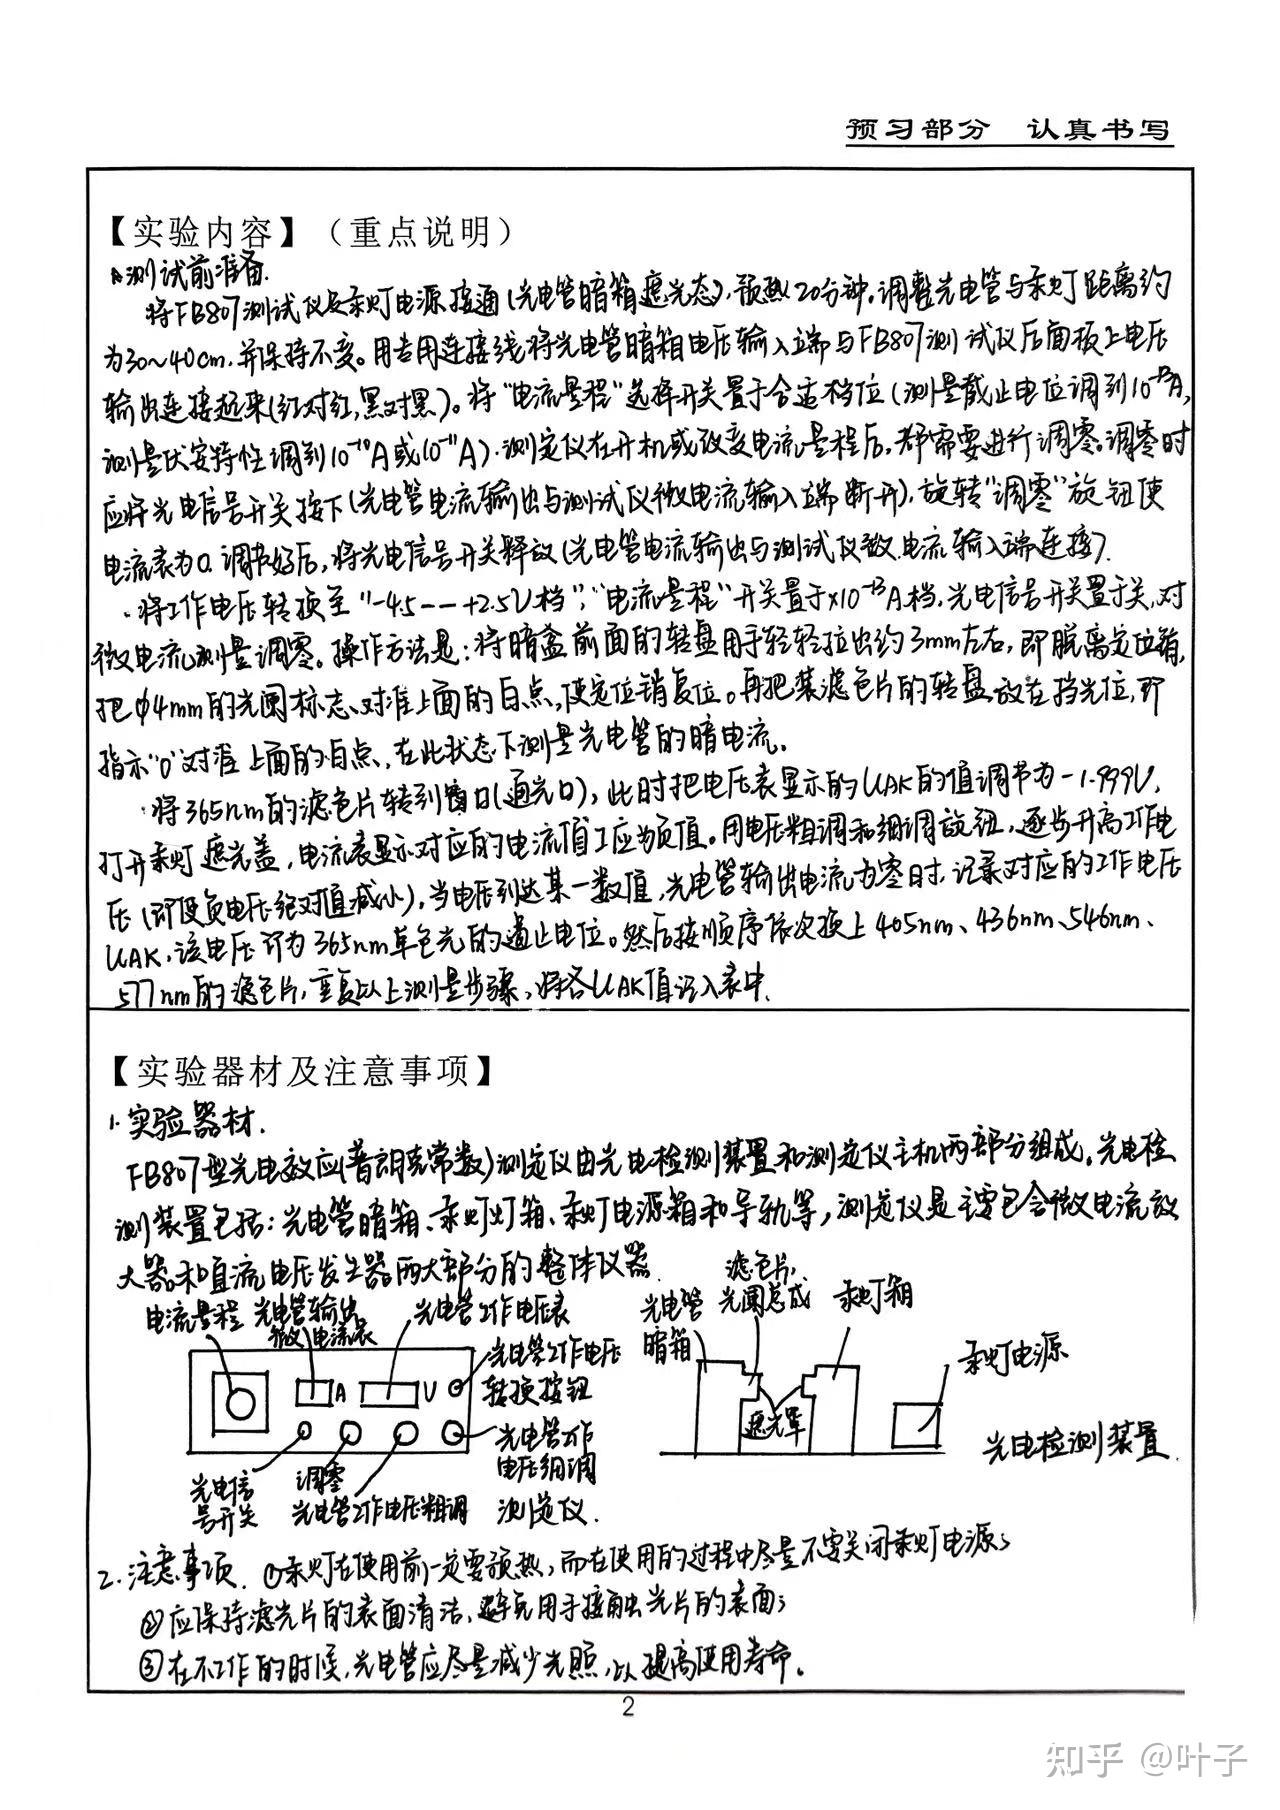 预习部分 认真书写
【实验内容】（重点说明）
测试前准备.
将FB807测试仪及汞灯电源接通(光电管暗箱遮光态),预热20分钟。调整光电管与汞灯距离约
为30~40cm.并保持不变。用专用连接线将光电管暗箱电压输入端与FB807测试仪后面板上电压
输出连接起来(红对红,黑对黑)。将"电流量程"选择开关置于合适档位(测量截止电位调到10⁻¹³A,
测量伏安特性调到10⁻¹⁰A或10⁻¹¹A).测定仪在开机或改变电流量程后,都需要进行调零。调零时
应将光电信号开关按下(光电管电流输出与测试仪微电流输入端断开),旋转"调零"旋钮使
电流表为0.调节好后,将光电信号开关释放(光电管电流输出与测试仪微电流输入端连接).
·将工作电压转换至"-4.5---+2.5V档","电流量程"开关置于×10⁻¹³A档,光电信号开关置于关,对
微电流测量调零。操作方法是:将暗盒前面的转盘用手轻轻拉出约3mm左右,即脱离定位销,
把φ4mm的光阑标志对准上面的白点,使定位销复位。再把装滤色片的转盘放在挡光位,即
指示"0"对准上面的白点,在此状态下测量光电管的暗电流.
·将365nm的滤色片转到窗口(通光口),此时把电压表显示的UAK的值调节为-1.999V,
打开汞灯遮光盖,电流表显示对应的电流值I应为负值。用电压粗调和细调旋钮,逐步升高工作电
压(即使负电压绝对值减小),当电压到达某一数值,光电管输出电流为零时,记录对应的工作电压
UAK,该电压即为365nm单色光的遏止电位。然后按顺序依次换上405nm、436nm、546nm、
577nm的滤色片,重复以上测量步骤,将各UAK值记入表中.
【实验器材及注意事项】
1.实验器材.
FB807型光电效应(普朗克常数)测定仪由光电检测装置和测定仪主机两部分组成。光电检
测装置包括:光电管暗箱、汞灯灯箱、汞灯电源箱和导轨等,测定仪是主要包含微电流放
大器和直流电压发生器两大部分的整体仪器.
电流量程
光电管输出
微电流表
光电管工作电压表
A
V
光电管工作电压
转换按钮
光电管工作
电压细调
光电信
号开关
调零
光电管工作电压粗调
测定仪.
光电管
暗箱
滤色片,
光阑总成
汞灯箱
遮光罩
汞灯电源
光电检测装置.
2.注意事项.①汞灯在使用前一定要预热,而在使用的过程中尽量不要关闭汞灯电源;
②应保持滤光片的表面清洁,避免用手接触光片的表面;
③在不工作的时候,光电管应尽量减少光照,以提高使用寿命.
2
知乎 @叶子